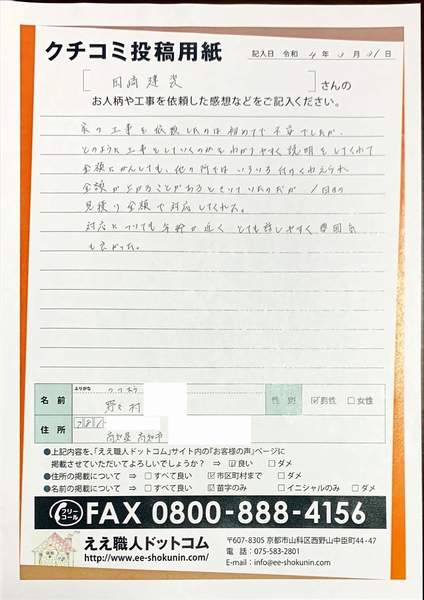 クチコミ投稿用紙
記入日 令和 4年 3月 21日
岡崎建装 さんの
お人柄や工事を依頼した感想などをご記入ください。
家の工事を依頼したのは初めてで不安でしたが、
どのように工事をしていくのかをわかりやすく説明をしてくれて
金額にかんしても、他の所ではいろいろ付けくわえられ
金額が上がることがあるときいていたのだが 1回目の
見積り金額で対応してくれた。
対応についても年齢が近く とても話しやすく雰囲気
も良かった。
ふりがな ののむら
名前 野々村 性別 ☑男性 □女性
住所 781
高知県 高知市
●上記内容を、「ええ職人ドットコム」サイト内の『お客様の声』ページに
掲載させていただいてよろしいでしょうか? ⇒ ☑良い □ダメ
●住所の掲載について ⇒ □すべて良い ☑市区町村まで □ダメ
●名前の掲載について ⇒ □すべて良い ☑苗字のみ □イニシャルのみ □ダメ
フリーコール FAX 0800-888-4156
ええ職人ドットコム
http://www.ee-shokunin.com/
〒607-8305 京都市山科区西野山中臣町44-47
電話:075-583-2801
E-mail:info@ee-shokunin.com